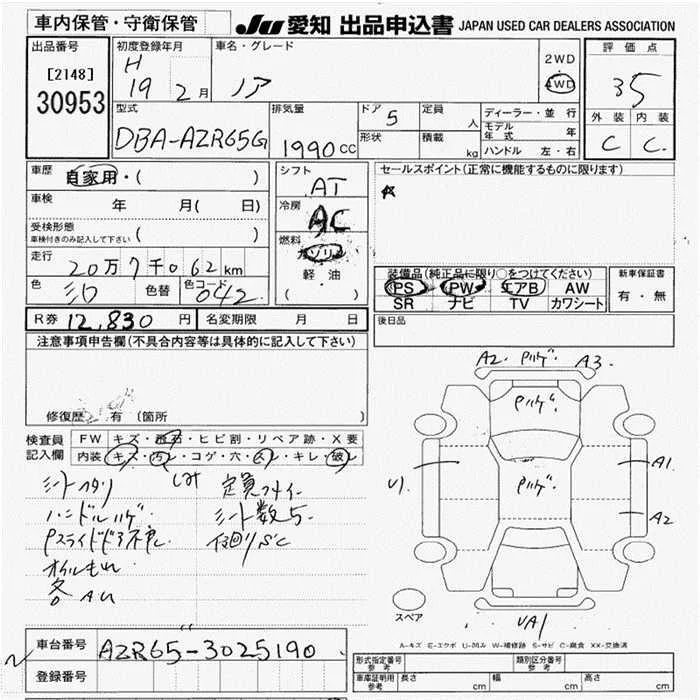 車内保管・守衛保管
JU 愛知 出品申込書 JAPAN USED CAR DEALERS ASSOCIATION
出品番号
[2148]
30953
初度登録年月
H
19 2月
車名・グレード
ノア
2WD
4WD
評価点
35
外装 内装
C C
型式
DBA-AZR65G
排気量
1990cc
ドア 5
形状
定員 人
積載 kg
ディーラー・並行
モデル年式 年
ハンドル 左・右
車歴 自家用・( )
車検 年 月( 日)
受検形態
車検付きのみ記入して下さい ( )
走行
20万7千062km
色 シロ 色替 色コード 042
シフト
AT
冷房
AC
燃料
ガソリン
軽・油
( )
セールスポイント(正常に機能するものに限ります)
装備品(純正品に限り○をつけてください)
PS PW エアB AW
SR ナビ TV カワシート
新車保証書
有・無
R券 12,830円 名変期限 月 日
後日品
注意事項申告欄(不具合内容等は具体的に記入して下さい)
修復歴 有 (箇所 )
検査員
記入欄
FW キズ・飛石・ヒビ割・リペア跡・X要
内装 キズ・汚レ・コゲ・穴・スレ・キレ・破レ
シートヘタリ シミ
ハンドルハゲ
Pスライドドア不良
オイルもれ
各 AU
シート数5
下回りSC
A2 Pハゲ A3
Pハゲ
Pハゲ
U1
A1
A2
UA1
スペア
A-キズ E-エクボ U-凹み W-補修跡 S-サビ C-腐食 XX-交換済
車台番号 AZR65-3025190
登録番号
形式指定番号 参考
類別区分番号 参考
車庫証明用 参考 長さ cm 幅 cm 高さ cm